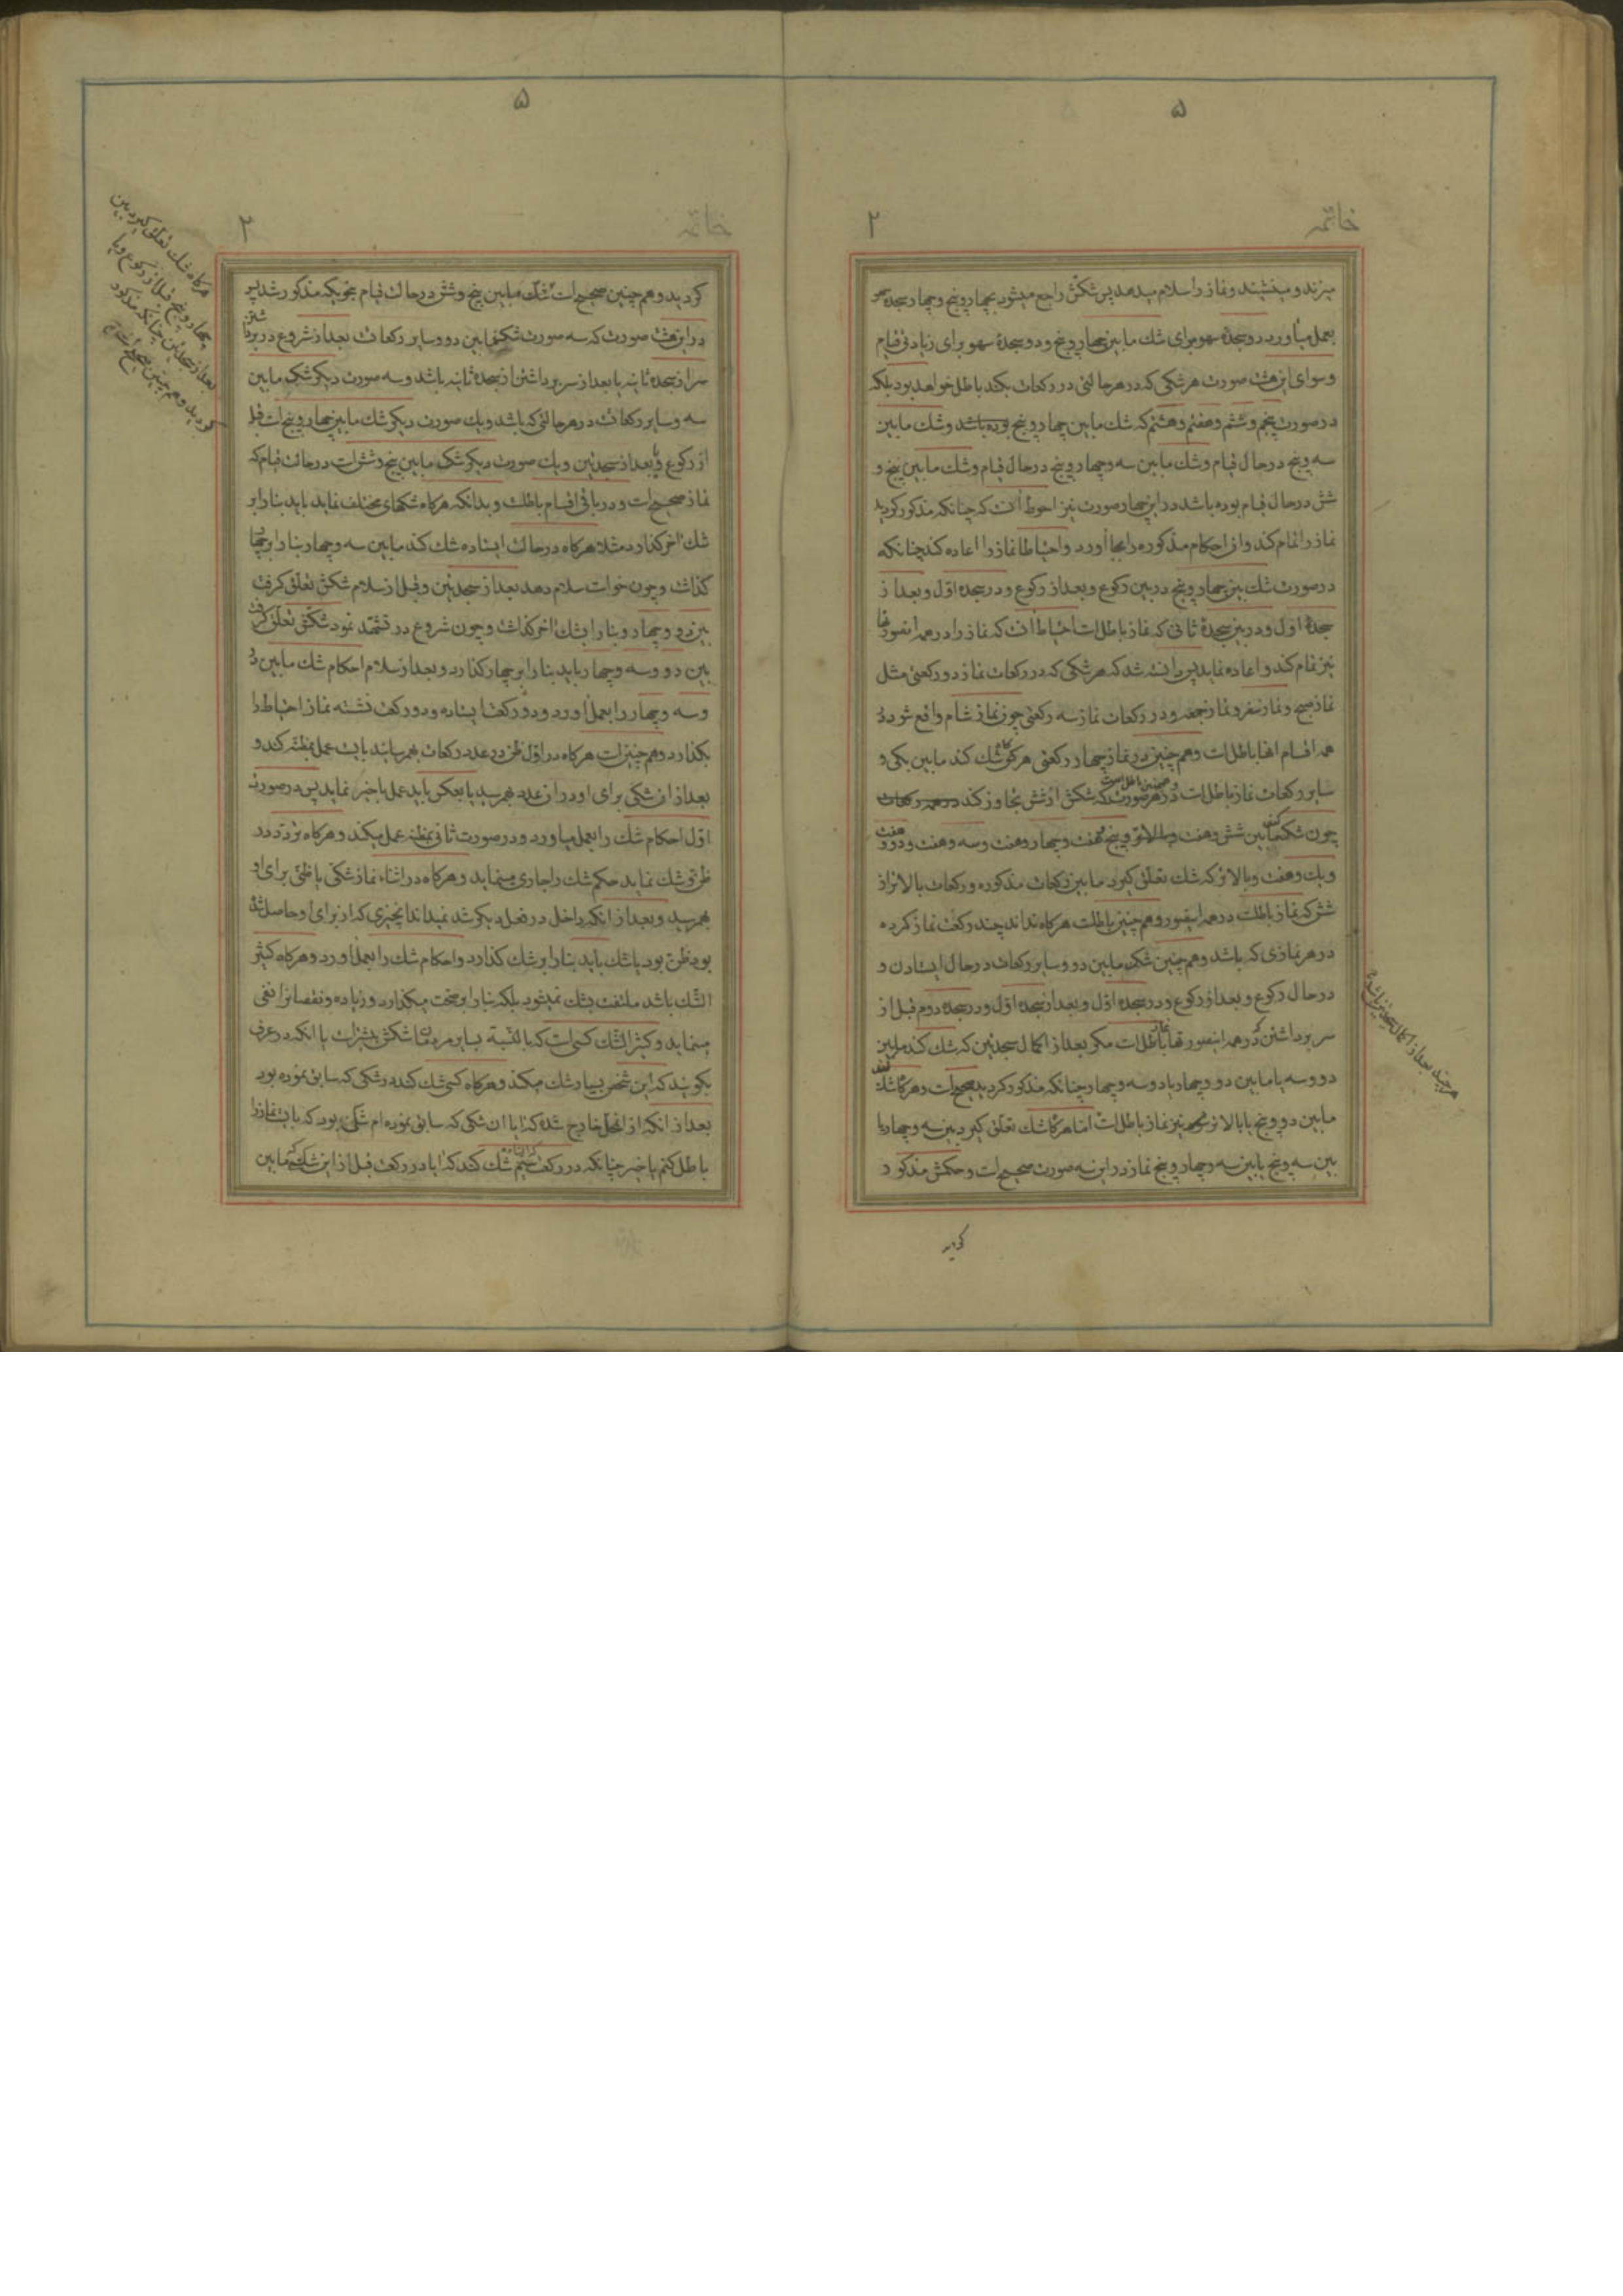 ۵
خاتمه ۲
میزند و مینشیند و نماز را سلام میدهد پس شکش راجع میشود بچهار و پنج و چهار سجده سهو
بعمل میآورد دو سجدهٔ سهو برای شك مابین چهار و پنج و دو سجدهٔ سهو برای زیادتی قیام
و سوای این هشت صورت هر شکی که در هر حالتی در رکعات بکند باطل خواهد بود بلکه
در صورت پنجم و ششم و هفتم و هشتم که شك مابین چهار و پنج بوده باشد و شك مابین
سه و پنج در حال قیام و شك مابین سه و چهار و پنج در حال قیام و شك مابین پنج و
شش در حال قیام بوده باشد در این چهار صورت نیز احوط آنست که چنانکه مذکور گردید
نماز را تمام کند و آن احکام مذکوره را بجا آورد و احتیاطا نماز را اعاده کند چنانکه
در صورت شك بین چهار و پنج در بین رکوع و بعد از رکوع و در سجده اول و بعد از
سجدهٔ اول و در بین سجدهٔ ثانی که نماز باطل است احتیاط آنست که نماز را در همه اینصورتها
نیز تمام کند و اعاده نماید پس دانسته شد که هر شکی که در رکعات نماز دو رکعتی مثل
نماز صبح و نماز سفر و نماز جمعه و در رکعات نماز سه رکعتی چون نماز شام واقع شود در
همه اقسام آنها باطل است و هم چنین در نماز چهار رکعتی هر گاه کسی شك کند مابین یکی و
سایر رکعات نماز باطل است و همچنین باطل است در هر صورت که شکش از شش تجاوز کند در همه رکعات
چون شك مابین شش و هفت و بالاتر و پنج و هفت و چهار و هفت و سه و هفت و دو و هفت
و یك و هفت و بالاتر که شك تعلق گیرد مابین رکعات مذکوره و رکعات بالاتر از
شش که نماز باطلست در همه اینصور و هم چنین باطلست هرگاه نداند چند رکعت نماز کرده
در هر نمازی که باشد و هم چنین شك مابین دو و سایر رکعات در حال ایستادن و
در حال رکوع و بعد از رکوع و در سجده اول و بعد از سجده اول و در سجده دوم قبل از
سر برداشتن که در همه اینصورتها نماز باطل است مگر بعد از اکمال سجدتین که شك کند مابین
دو و سه یا مابین دو و چهار یا دو و سه و چهار چنانکه مذکور گردید صحیح است و هرگاه شك کند
مابین دو و پنج یا بالاتر نیز نماز باطل است اما هرگاه شك تعلق گیرد بین سه و چهار یا
بین سه و پنج یا بین سه و چهار و پنج نماز در این سه صورت صحیح است و حکمش مذکور
گردید
هر چند بعد از اکمال سجدتین باشد
۵
خاتمه ۲
گردید و هم چنین صحیح است شك مابین پنج و شش در حالت قیام بنحویکه مذکور شد پس
در این هشت صورت که سه صورت شك مابین دو و سایر رکعات بعد از شروع در برداشتن
سر از سجده ثانیه یا بعد از سر برداشتن از سجدهٔ ثانیه باشد و سه صورت دیگر شك مابین
سه و سایر رکعات در هر حالتی که باشد و یك صورت دیگر شك مابین چهار و پنج است قبل
از رکوع و یا بعد از سجدتین و یك صورت دیگر شك مابین پنج و شش است در حالت قیام که
نماز صحیح است و در باقی اقسام باطلست و بدانکه هرگاه شکهای مختلف نماید باید بنا را بر
شك آخر گذارد مثلا هرگاه در حالت ایستاده شك کند مابین سه و چهار بنا را بر چهار
گذاشت و چون خواست سلام دهد بعد از سجدتین و قبل از سلام شکش تعلق گرفت
بین دو و چهار و بنا را بشك آخر گذاشت و چون شروع در تشهد نمود شکش تعلق گرفت
بین دو و سه و چهار باید بنا را بر چهار گذارد و بعد از سلام احکام شك مابین دو
و سه و چهار را بعمل آورد و دو رکعت ایستاده و دو رکعت نشسته نماز احتیاط را
بگذارد و هم چنین است هرگاه در اول ظن در عدد رکعات بهم رساند بایست عمل بمظنه کند و
بعد از آن شکی برای او در آن عدد بهم رسید یا بعکس باید عمل باخیر نماید پس در صورت
اول احکام شك را بعمل میاورد و در صورت ثانی بمظنه عمل میکند و هرگاه تردد در
ظن و شك نماید حکم شك را جاری مینماید و هرگاه در اثناء نماز شکی یا ظنی برای او
بهم رسید و بعد از آنکه داخل در فعل دیگر شد نمیداند آنچیزی که از برای او حاصل شد
بود ظن بود یا شك باید بنا را بر شك گذارد و احکام شك را بعمل آورد و هرگاه کثیر
الشك باشد ملتفت بشك نمیشود بلکه بنا را بر صحت میگذارد و زیاده و نقصان را نفی
مینماید و کثیر الشك کسی است که بالنسبة بسایر مردمان شکش بیشتر است یا آنکه در عرف
بگویند که این شخص بسیار شك میکند و هرگاه کسی شك کند در شکی که سابق نموده بود
بعد از آنکه از محل خارج شده که آیا آن شکی که سابق نموده ام شکی بود که بایست نماز را
باطل کنم یا خیر چنانکه در رکعت شك کند که آیا در رکعت قبل از این شك که مابین
هرگاه شك تعلق گیرد بین
چهار و پنج قبل از رکوع و یا
بعد از سجدتین چنانکه مذکور
گردید و هم چنین صحیح است